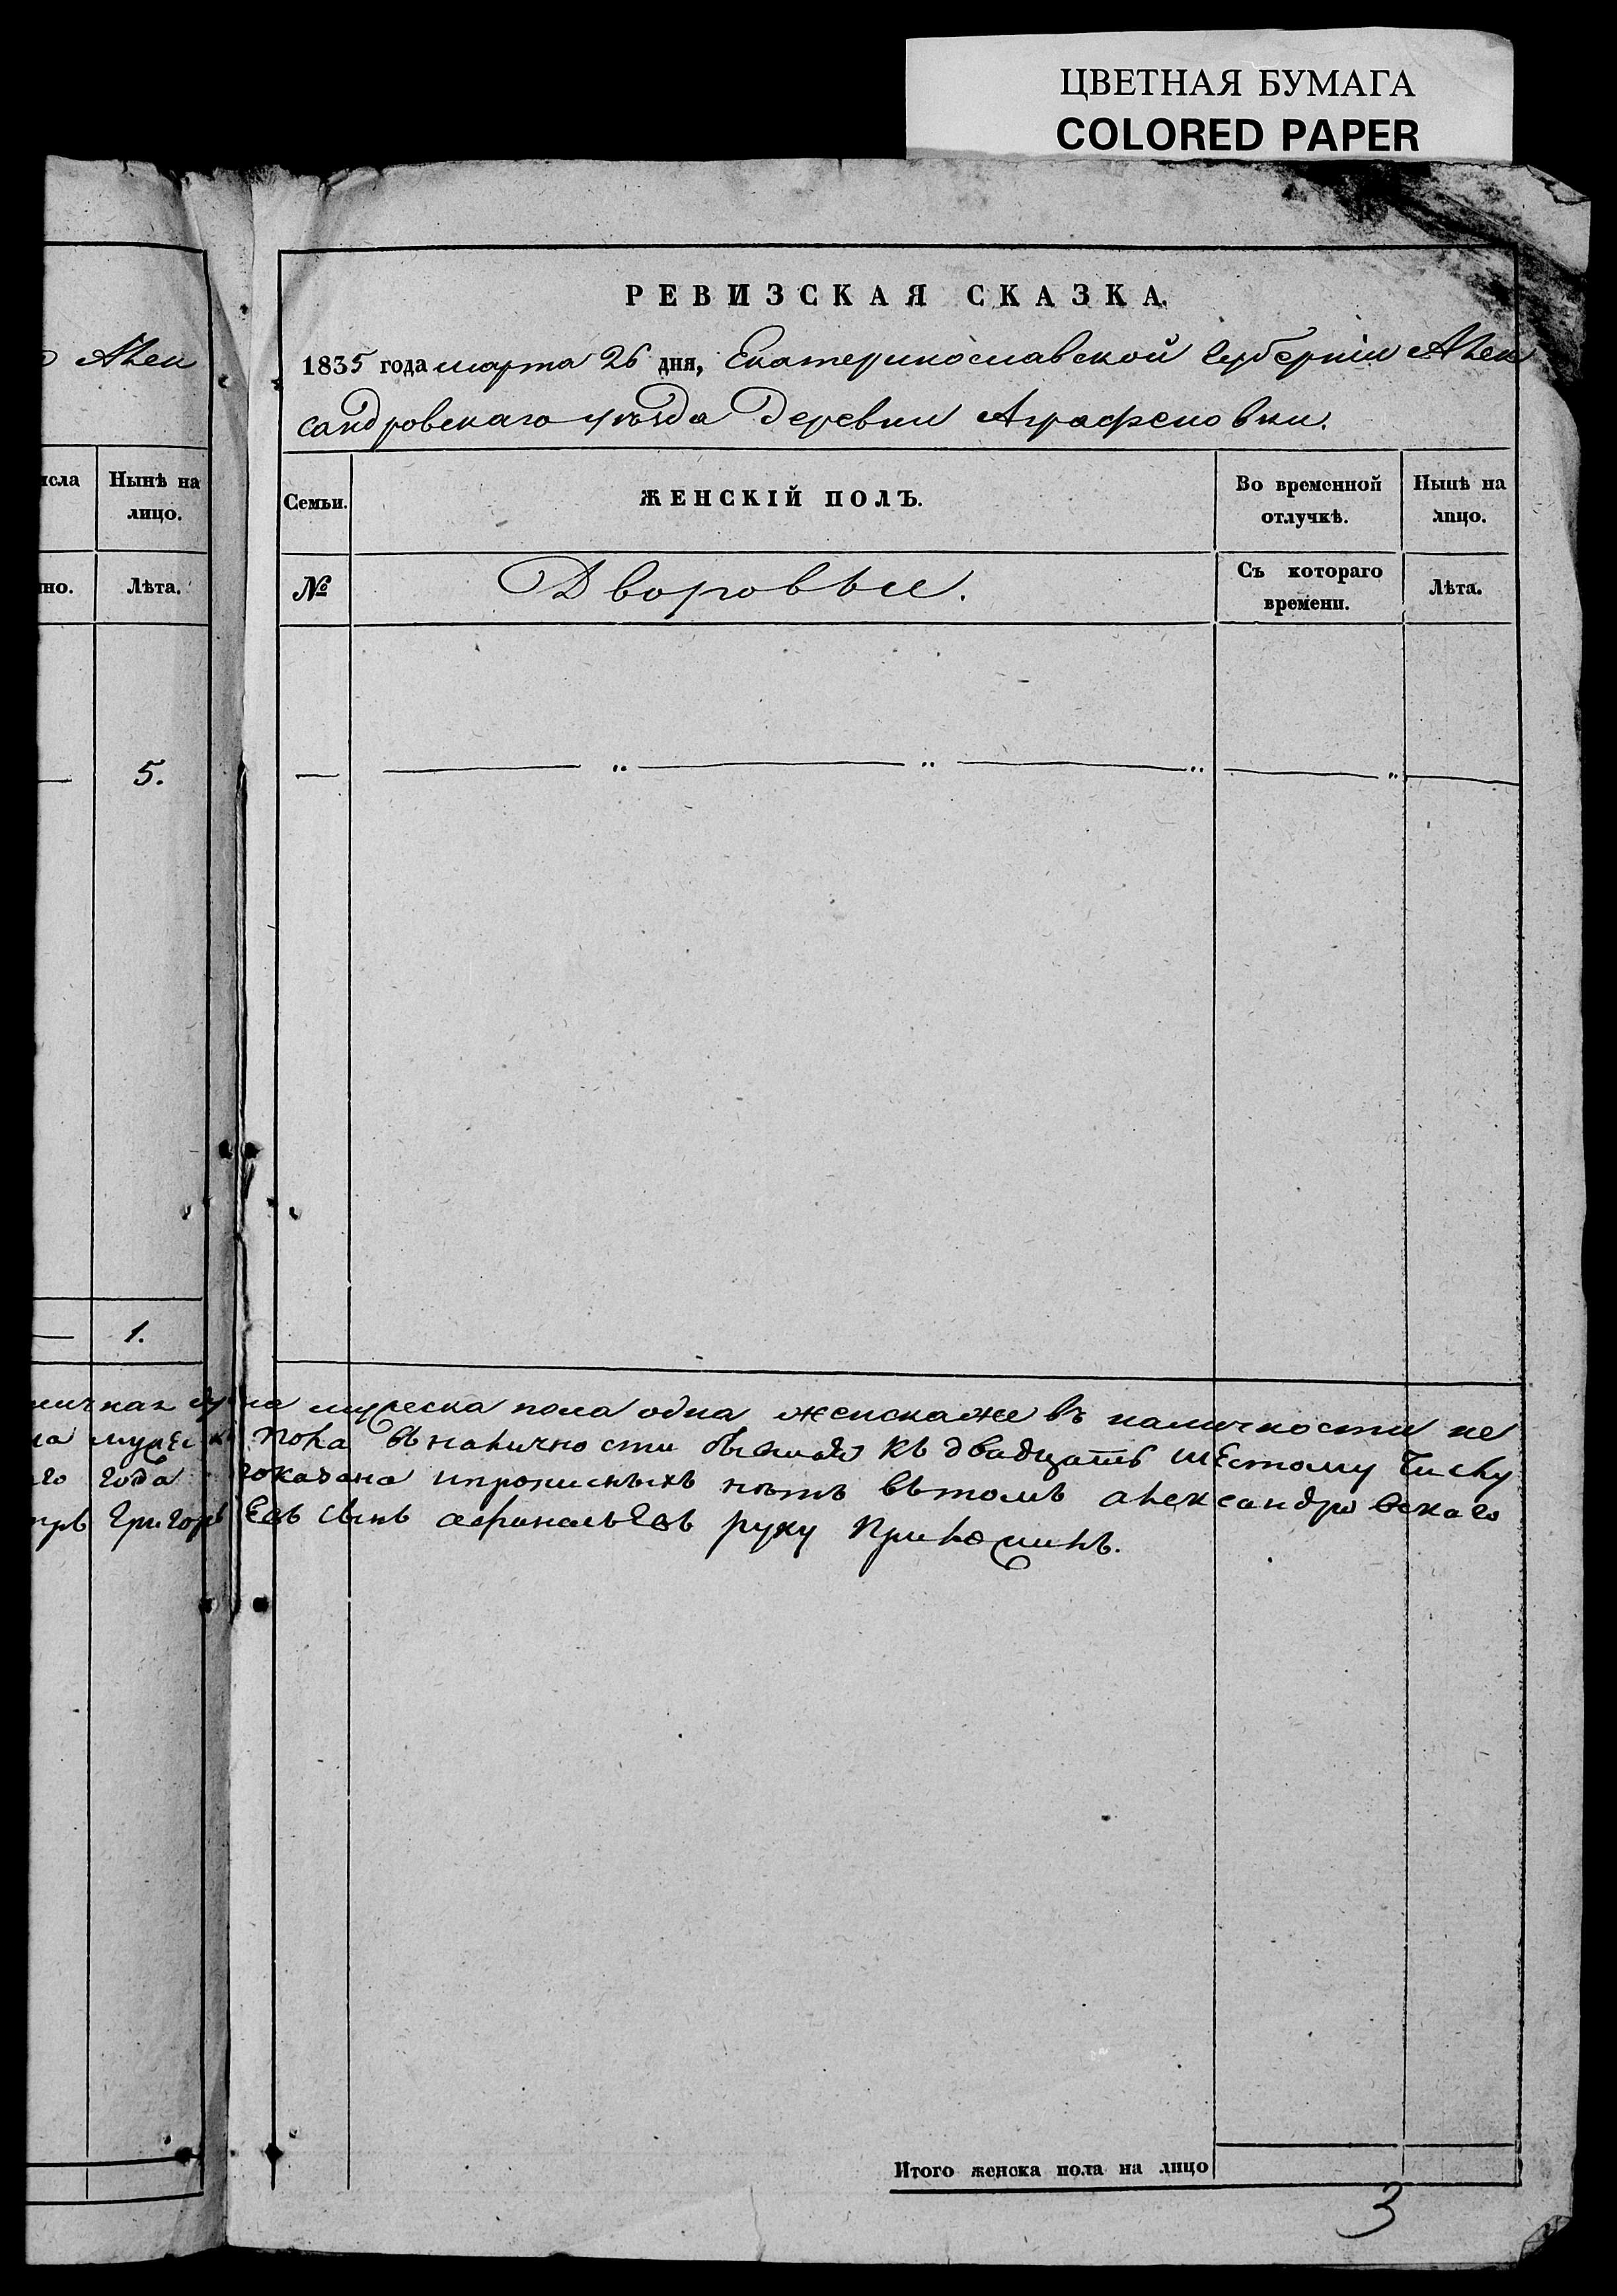 ЦВЕТНАЯ БУМАГА
COLORED PAPER
Алек
Нынѣ на
лицо.
Лѣта.
5.
1.
РЕВИЗСКАЯ СКАЗКА.
1835 года марта 26 дня, Екатеринославской Губерніи Алек
сандровскаго уѣзда Деревни Аграфеновки.
Семьи.
ЖЕНСКІЙ ПОЛЪ.
Во временной
отлучкѣ.
Нынѣ на
лицо.
№
Дворовые.
Съ котораго
времени.
Лѣта.
мужеска пола одна женска же въ наличности не
пола вналичности къ двадцать шестому числу
года показана ипрописныхъ нѣтъ втомъ александровскаго
Григорьевъ сынъ руку приложилъ.
Итого женска пола на лицо
3